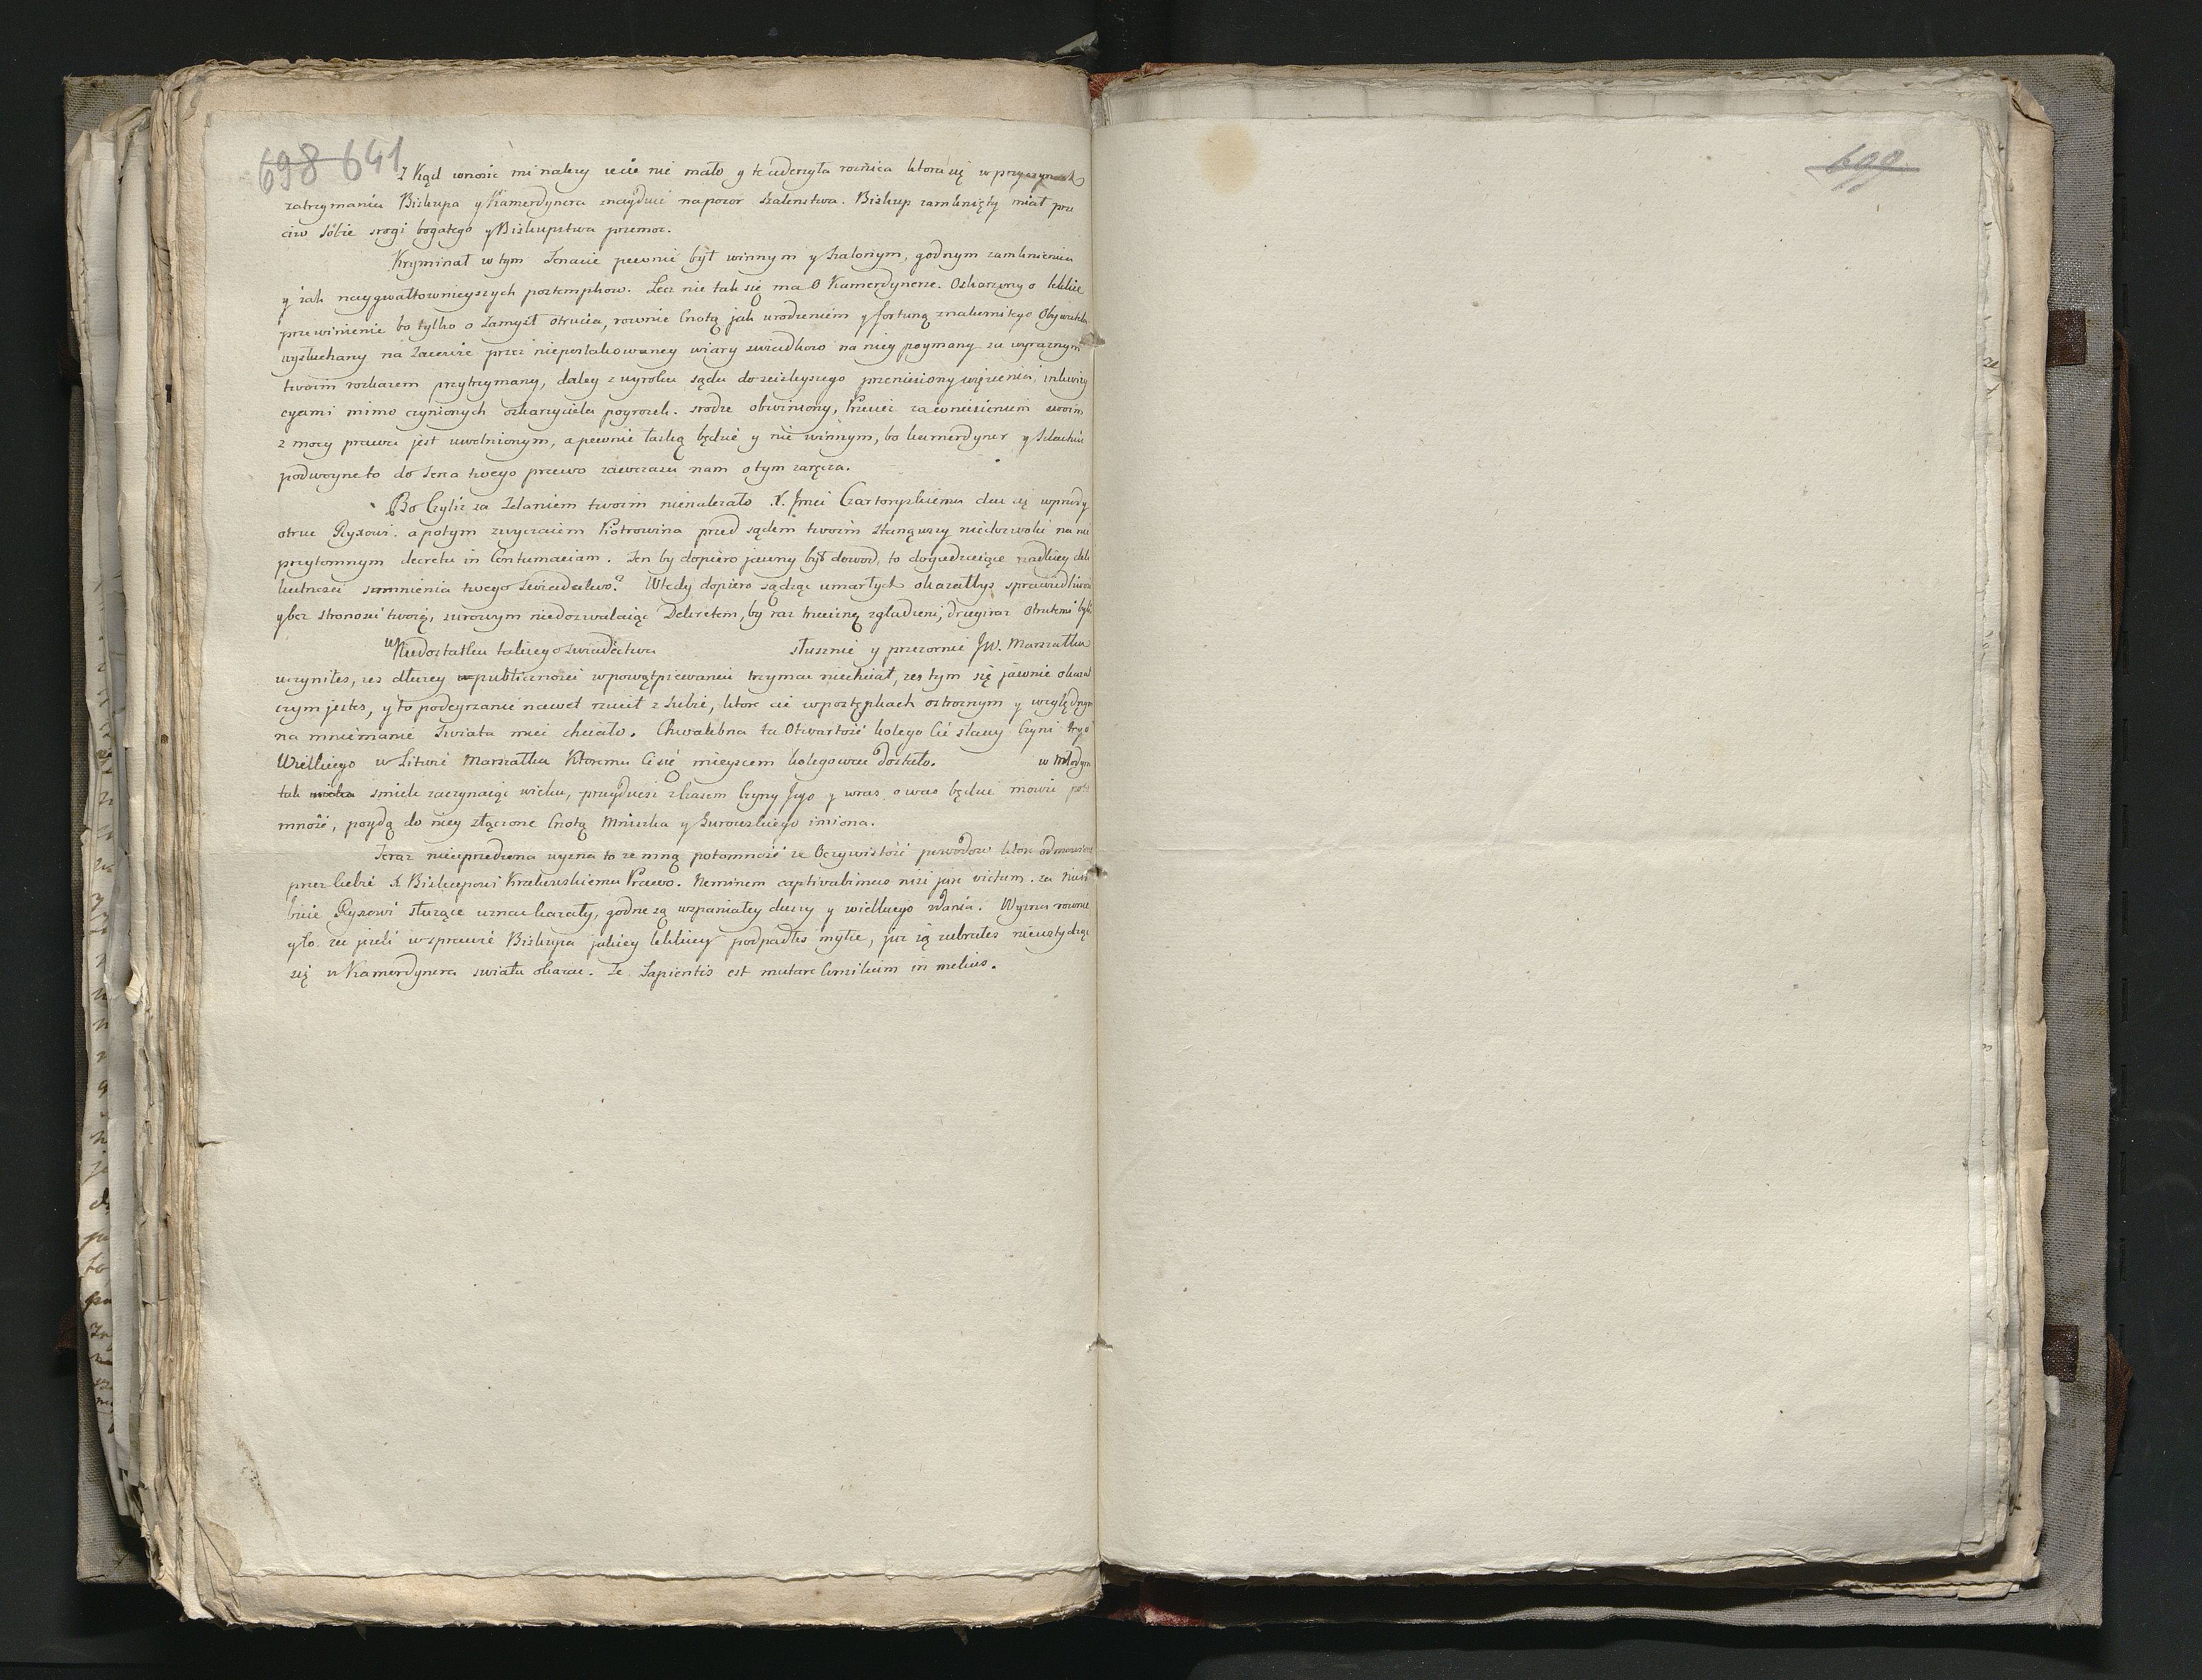 698 641
Z kąd wnosic mi nalezy ze cie nie mało y ta uderzyła roznica ktora się w przyczynach
zatrzymania Biskupa y Kamerdynera znayduie na pozor szalenstwa. Biskup zamknięty miał prze
ciw sobie srogi bogatego y Biskupstwa przemoc.
Kryminał w tym Senacie pewnie był winnym y szalonym, godnym zamknienia
y zak naygwałtownieyszych postempkow. Lecz nie tak się ma o Kamerdynerze. Oskarzony o lekkie
przewinienie bo tylko o zamysł otrucia, rownie Cnotą jak urodzeniem y fortuną znakomitego Obywatela
wysłuchany na zacewie przez nieposzlakowaney wiary swiadkow na niey poymany za wyraznym
twoim rozkazem przytrzymany, daley z wyroku sądu do scislejszego przeniesiony więzienia, inkwizy
cyami mimo czynionych oskarzyciela pogrozek. srodze obwiniony, Przeciez za wniesieniem swoim
z mocy prawa jest uwolnionym, a pewnie łaską będzie y nie winnym, bo kamerdyner y Szlachcic
podwoyne to do Serca twego prawo zawczasu nam o tym zaręcza.
Bo Czyliz za Zdaniem twoim nienalezało X. Jmci Czartoryskiemu dac się wprzody
otruc Ryxowi. a potym zwyczaiem Piotrowina przed sądem twoim stanąwszy niedozwolic na nie
przytomnym decretu in Contumaciam. Ten by dopiero jawny był dowod, to dogadzaiące rzadkiey deli
katnosci sumnienia twego Swiadectwo? Wtedy dopiero sądząc umarłych okazałbys sprawiedliwosc
y bez stronosc twoię, surowym niedozwalaiąc Dekretem, by raz trucizną zgładzeni, drugi raz Otrutemi byli.
w Niedostatku takiego swiadectwa słusznie y przezornie JW. Marszałku
uczyniłes, zes dłuzey w publicznosci w powątpiewaniu trzymac niechciał, zes tym się jawnie okazał
czym jestes, y to podeyrzanie nawet rzucił z Siebie, ktore cie w postępkach ostroznym y względnym
na mniemanie Swiata miec chciało. Chwalebna ta Otwartosć kolegą Cię sławy Czyni tego
Wielkiego w Litwie Marszałka Ktoremu Ci się mieyscem kolegowac dostało. w młodym
tak smiele zaczynaiąc wieku, przydziesz z kasem Czyny Jego y wraz o was będzie mowic poto
mność, poydą do niey złączone Cnotą Mniszka y Gurowskiego imiona.
Teraz nieuprzedzona wyzna to ze mną potomność ze Oczywistość powodow ktore odmowione
przez ciebie X Biskupowi Krakowskiemu Prawo. Neminem captivabimus nisi jure victum. za nie
bnie Ryxowi słuzące uznac kazały, godne są wspaniałey duszy y wielkiego zdania. Wyzna rownie
y to. ze jezeli w sprawie Biskupa jakiey lekkiey podpadłes mylce, juz ią zebrałes niewstydząc
się w Kamerdynera swiatu okazac. Ze. Sapientis est mutare Consilium in melius.
699